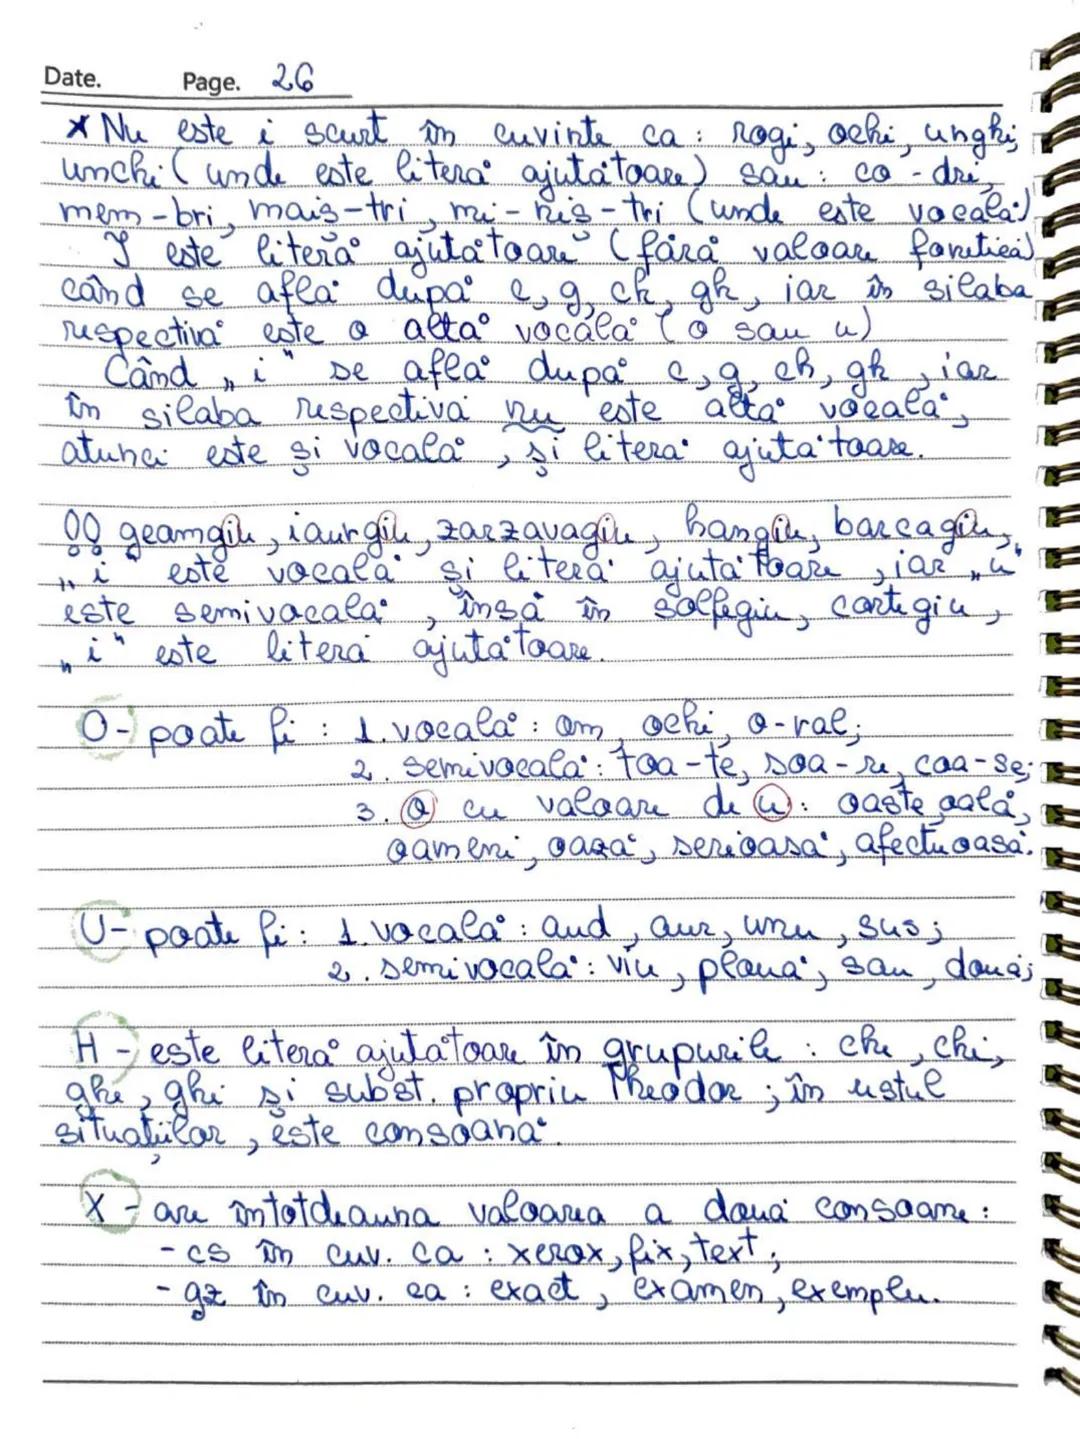 Date. Page. 26
* Nu este i scurt în cuvinte ca: rogi, ochi, unghi,
unchi (unde este literă ajutătoare) sau: co-dri,
mem-bri, maiș-tri, mi-niș-tri (unde este vocală)
I este literă ajutătoare (fără valoare fonetică)
când se află după c, g, ch, gh, iar în silaba
respectivă este o altă vocală (o sau u)
Când „i" se află după c, g, ch, gh, iar
în silaba respectivă nu este altă vocală,
atunci este și vocală, și literă ajutătoare.
!! geamgiu, iaurgiu, zarzavagiu, hangiu, barcagiu,
„i" este vocală și literă ajutătoare, iar „u"
este semivocală, însă în solfegiu, cortegiu,
„i" este literă ajutătoare.
O- poate fi: 1. vocală: om, ochi, o-ral;
2. semivocală: toa-te, soa-re, coa-se;
3. o cu valoare de u: oaste, oală,
oameni, oază, serioasă, afectuoasă.
U- poate fi: 1. vocală: aud, aur, unu, sus;
2. semivocală: viu, plouă, sau, două;
H - este literă ajutătoare în grupurile: che, chi,
ghe, ghi și subst. propriu Theodor; în restul
situațiilor, este consoană.
X - are întotdeauna valoarea a două consoane:
- cs în cuv. ca: xerox, fix, text;
- gz în cuv. ca: exact, examen, exemplu.